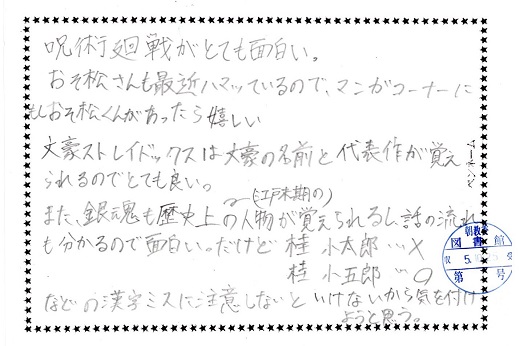 呪術廻戦がとても面白い。
おそ松さんも最近ハマッているので、マンガコーナーに
もしおそ松くんがあったら嬉しい
文豪ストレイドックスは文豪の名前と代表作が覚え
られるのでとても良い。
(江戸末期の)
また、銀魂も歴史上の人物が覚えられるし、話の流れ
も分かるので面白い。だけど 桂 小太郎…×
桂 小五郎…○
などの漢字ミスに注意しないといけないから気を付け
ようと思う。
図書館
5.
第 号